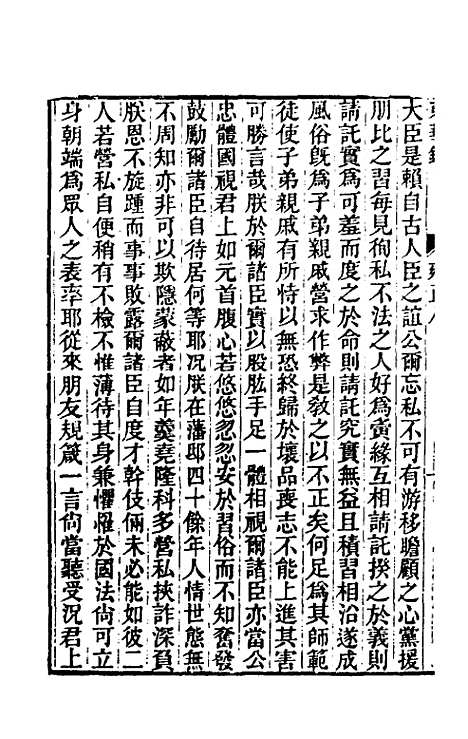 大臣是賴自古人臣之誼公爾忘私不可有游移瞻顧之心黨援
朋比之習每見徇私不法之人好為夤緣互相請託揆之於義則
請託實為可羞而度之於命則請託究實無益且積習相沿遂成
風俗旣為子弟親戚營求作弊是敎之以不正矣何足為其師範
徒使子弟親戚有所恃以無恐終歸於壞品喪志不能上進其害
可勝言哉朕於爾諸臣實以股肱手足一體相視爾諸臣亦當公
忠體國視君上如元首腹心若悠悠忽忽安於習俗而不知奮發
鼓勵爾諸臣自待居何等耶况朕在藩邸四十餘年人情世態無
不周知亦非可以欺隱蒙蔽者如年羹堯隆科多營私挾詐深負
朕恩不旋踵而事事敗露爾諸臣自度才幹伎倆未必能如彼二
人若營私自便稍有不檢不惟薄待其身兼懼罹於國法尙可立
身朝端為眾人之表率耶從來朋友規箴一言尙當聽受况君上